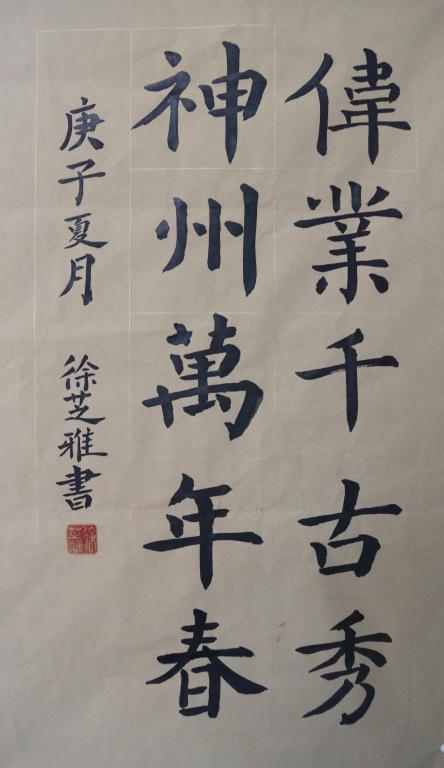 偉業千古秀
神州萬年春
庚子夏月 徐芝雅書